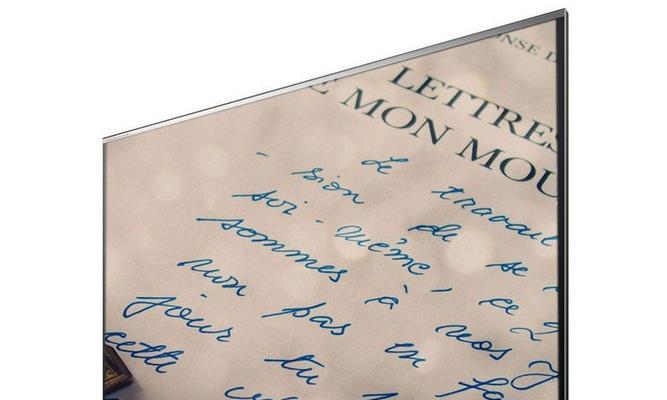 NSE D
LETTRES
E MON MOU
- Le travail
sion de se
soi-même, ce
sommes à nos y
non pas en
jour tu
cette